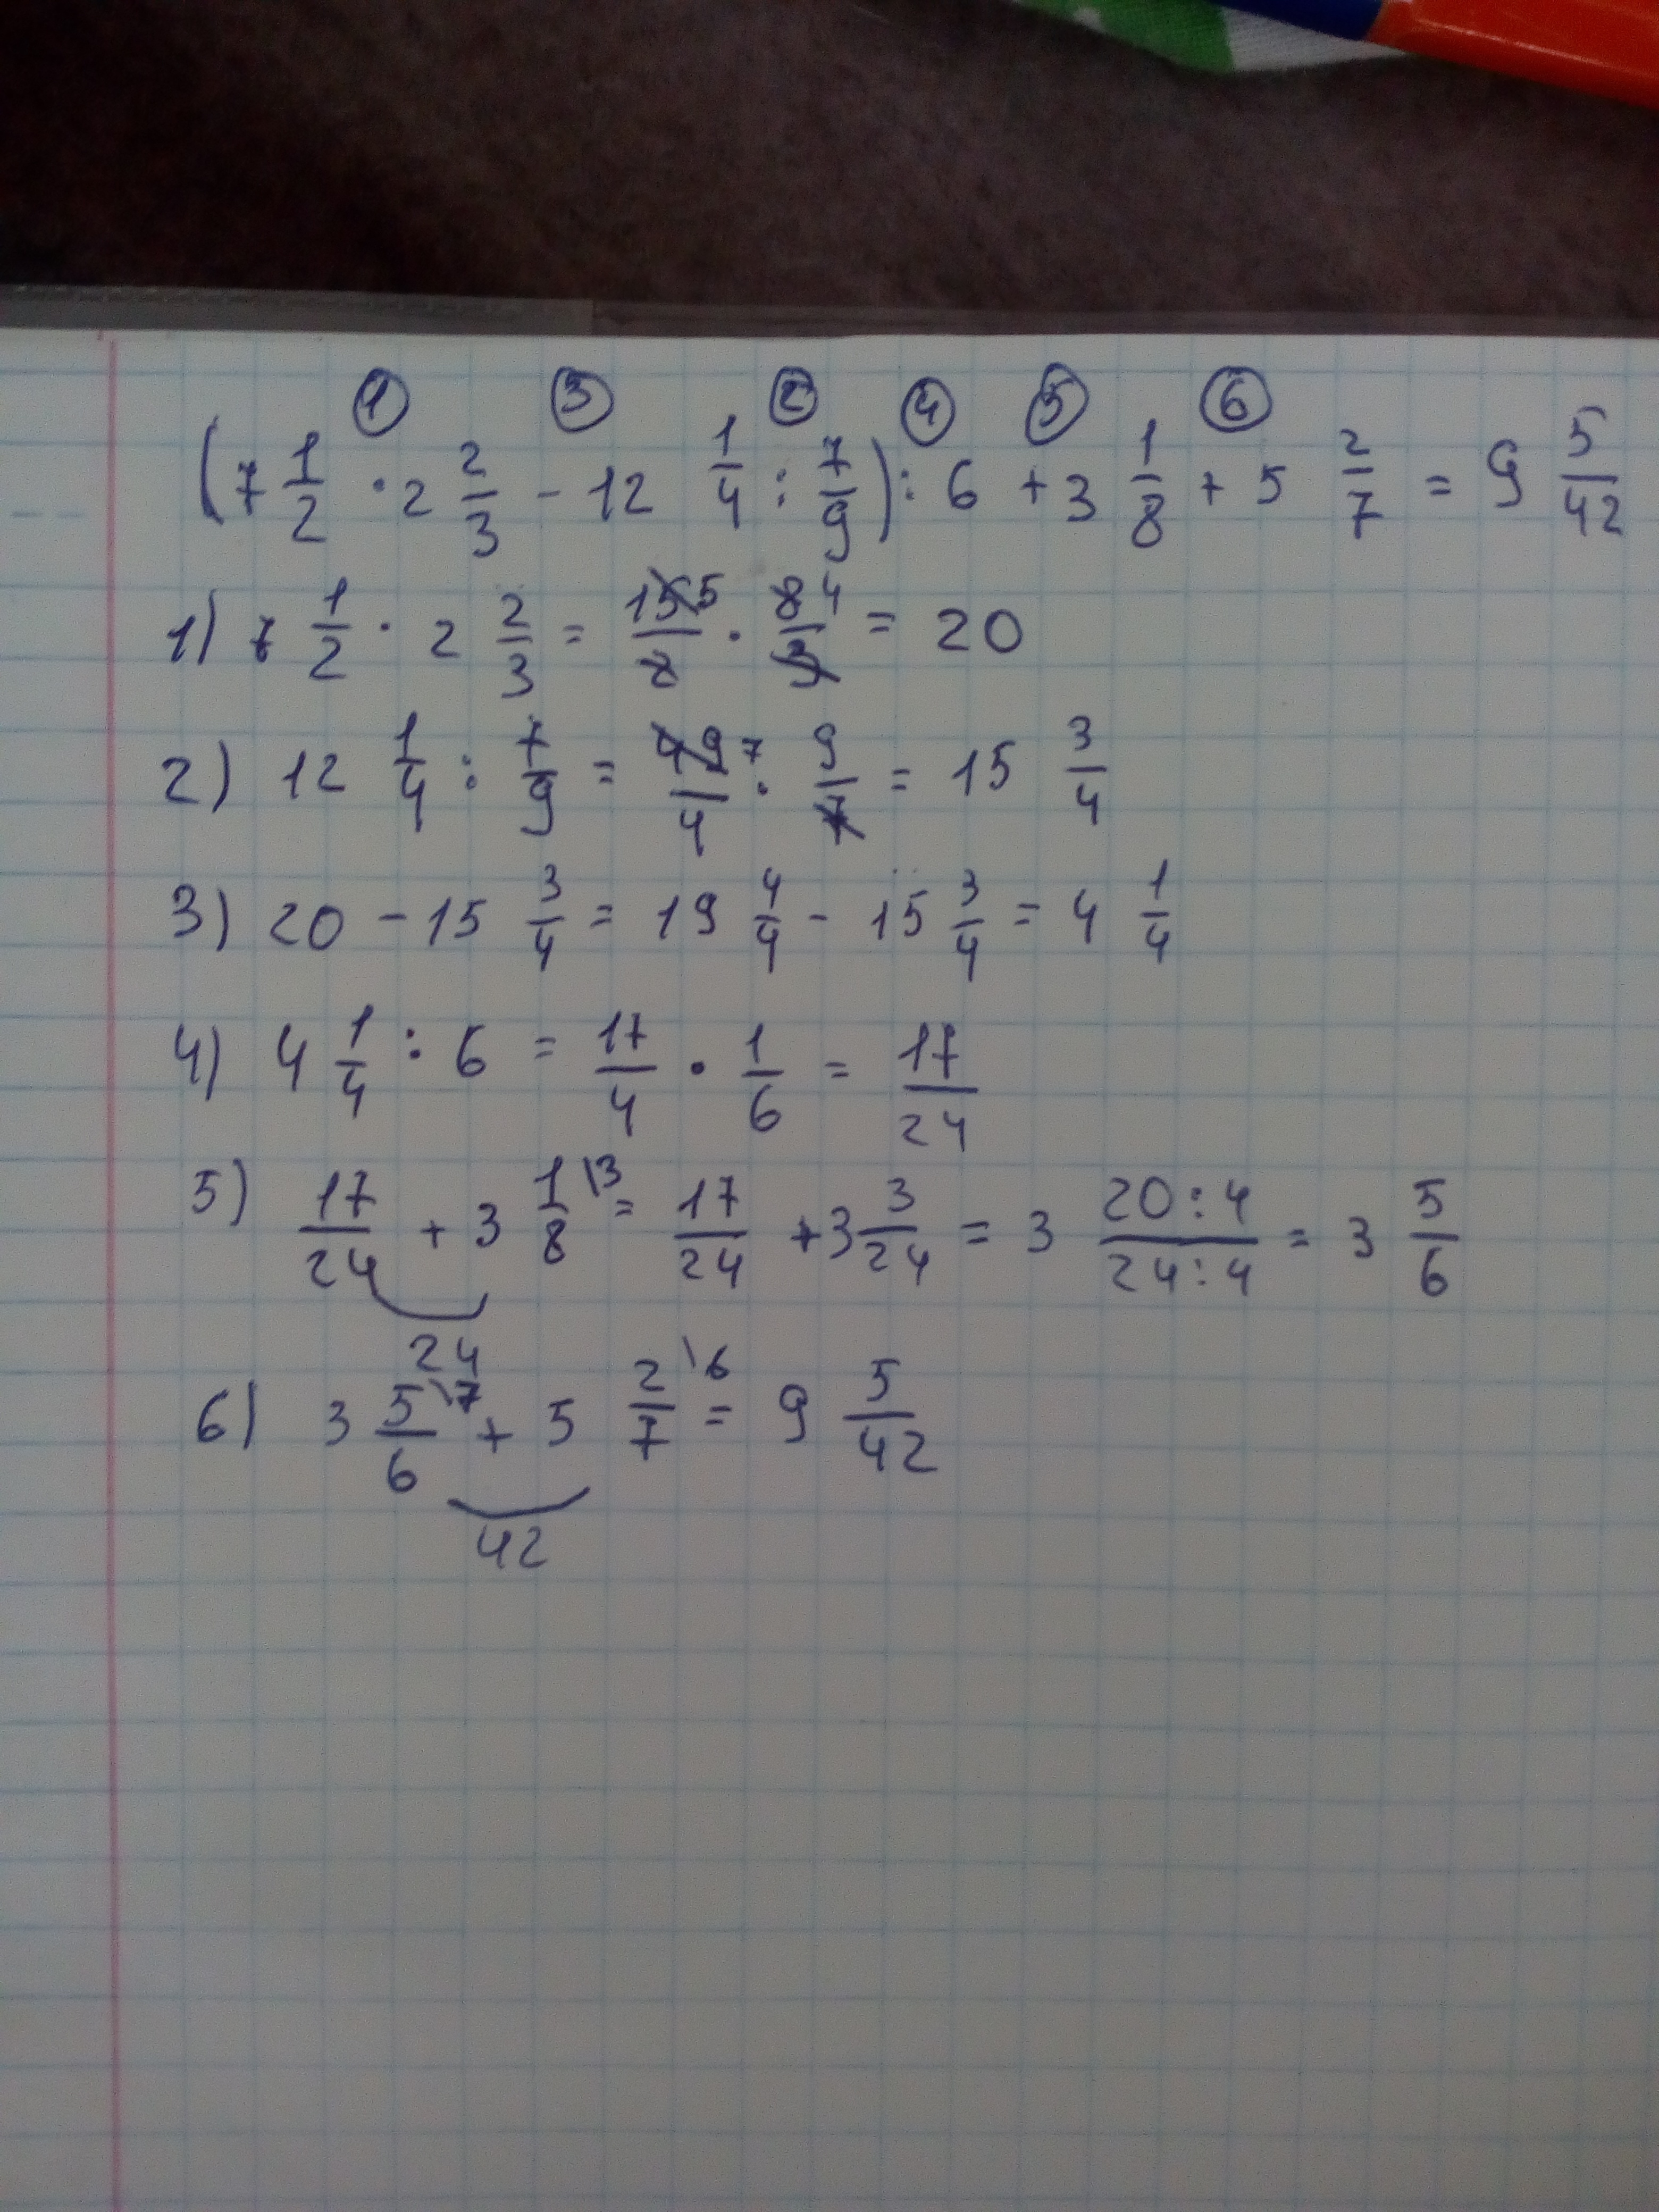 ① ③ ② ④ ⑤ ⑥
(7 1/2 · 2 2/3 - 12 1/4 : 7/9) : 6 + 3 1/8 + 5 2/7 = 9 5/42
1) 7 1/2 · 2 2/3 = 15 5/2 · 8 4/3 = 20
2) 12 1/4 : 7/9 = 49 7/4 · 9/7 = 15 3/4
3) 20 - 15 3/4 = 19 4/4 - 15 3/4 = 4 1/4
4) 4 1/4 : 6 = 17/4 · 1/6 = 17/24
5) 17/24 + 3 1/8 \3 = 17/24 + 3 3/24 = 3 20:4/24:4 = 3 5/6
24
6) 3 5/6 \7 + 5 2/7 \6 = 9 5/42
42